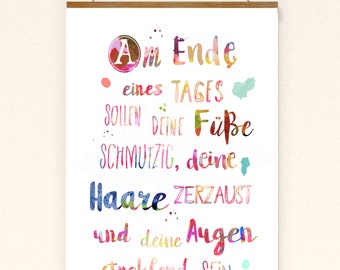 Am Ende
eines TAGES
SOLLEN DEINE Füße
SCHMUTZIG, deine
Haare ZERZAUST
und deine Augen
strahlend SEIN